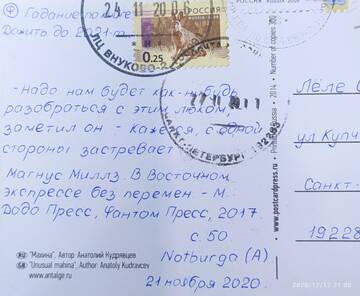 Гадание по
Дожить до 2021-го
24 11 20 06
РОССИЯ
0.25
ЛЦ ВНУКОВО-2
РОССИЯ
- Надо нам будет как-нибудь
разобраться с этим люком,
заметил он - кажется, с одной
стороны застревает.
Магнус Миллз. В Восточном
экспрессе без перемен - М.:
Додо Пресс, Фантом Пресс, 2017.
с. 50
Notburga (А)
21 ноября 2020.
САНКТ-ПЕТЕРБУРГ
RU "Махина", Автор Анатолий Кудрявцев
GB "Unusual mahina", Author Anatoly Kudravcev
www.antalge.ru
www.postcardpress.ru • Printed in Russia • 2014 • Number of copies
Лёле С
ул Купч
Санкт-
19228
2020/12/12 21:06